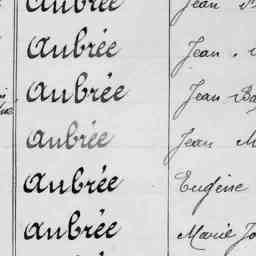 Aubrée Jean
Aubrée Jean
Aubrée Jean Ba
Aubrée Jean M
Aubrée Eugène
Aubrée Marie Jo